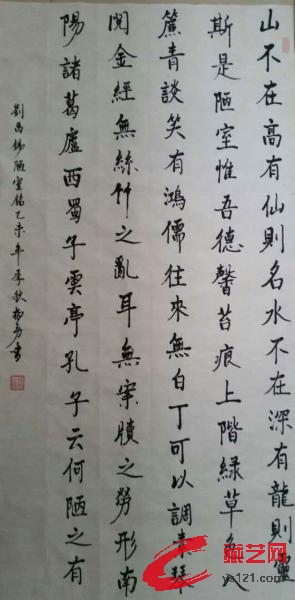 山不在高有仙則名水不在深有龍則靈
斯是陋室惟吾德馨苔痕上階緑草色入
簾青談笑有鴻儒往來無白丁可以調素琴
閱金經無絲竹之亂耳無案牘之勞形南
陽諸葛廬西蜀子雲亭孔子云何陋之有
劉禹錫陋室銘乙未年季秋
藏艺网
ys121.com